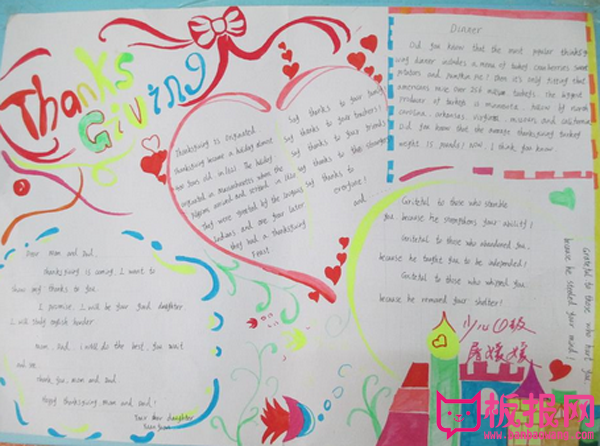 Thanks
Giving
Thanksgiving is originated
Thanksgiving became a holiday almost
years ago, in 1621. The holiday
originated in Massachusetts when the
Pilgrims arrived and settled in
They were greeted by the Indians
Indians and one year later
they had a thanksgiving
Feast
Say thanks to your family
Say thanks to your teachers!
Say thanks to your friends
Say thanks to the strangers
Say thanks to
everyone!
and
Dinner
Did you know that the most popular thanksgi-
ving dinner includes a menu of turkey cranberries sweet
potatoes and pumpkin pie? then it's only fitting that
americans raise over 256 million turkeys. The biggest
producer of turkeys is minnesota, follow by north
carolina, arkansas, virginia, missouri and california
Did you know that the average thanksgiving turkey
weighs 15 pounds? NOW, I think you know.
Dear mom and dad.
thanksgiving is coming. I want to
show my thanks to you.
I promise, I will be your good daughter.
I will study english harder
mom, dad, i will do the best. you wait
and see.
Thank you, mom and dad.
Happy thanksgiving, mom and dad!
Your dear daughter
Grateful to those who stumble
you, because he strengthens your ability!
Grateful to those who abandoned you,
because he taught you to be independed!
Grateful to those who whipped you.
because he removed your shelter!
Grateful to those who hurt you,
because he steeled your mind!
板报网